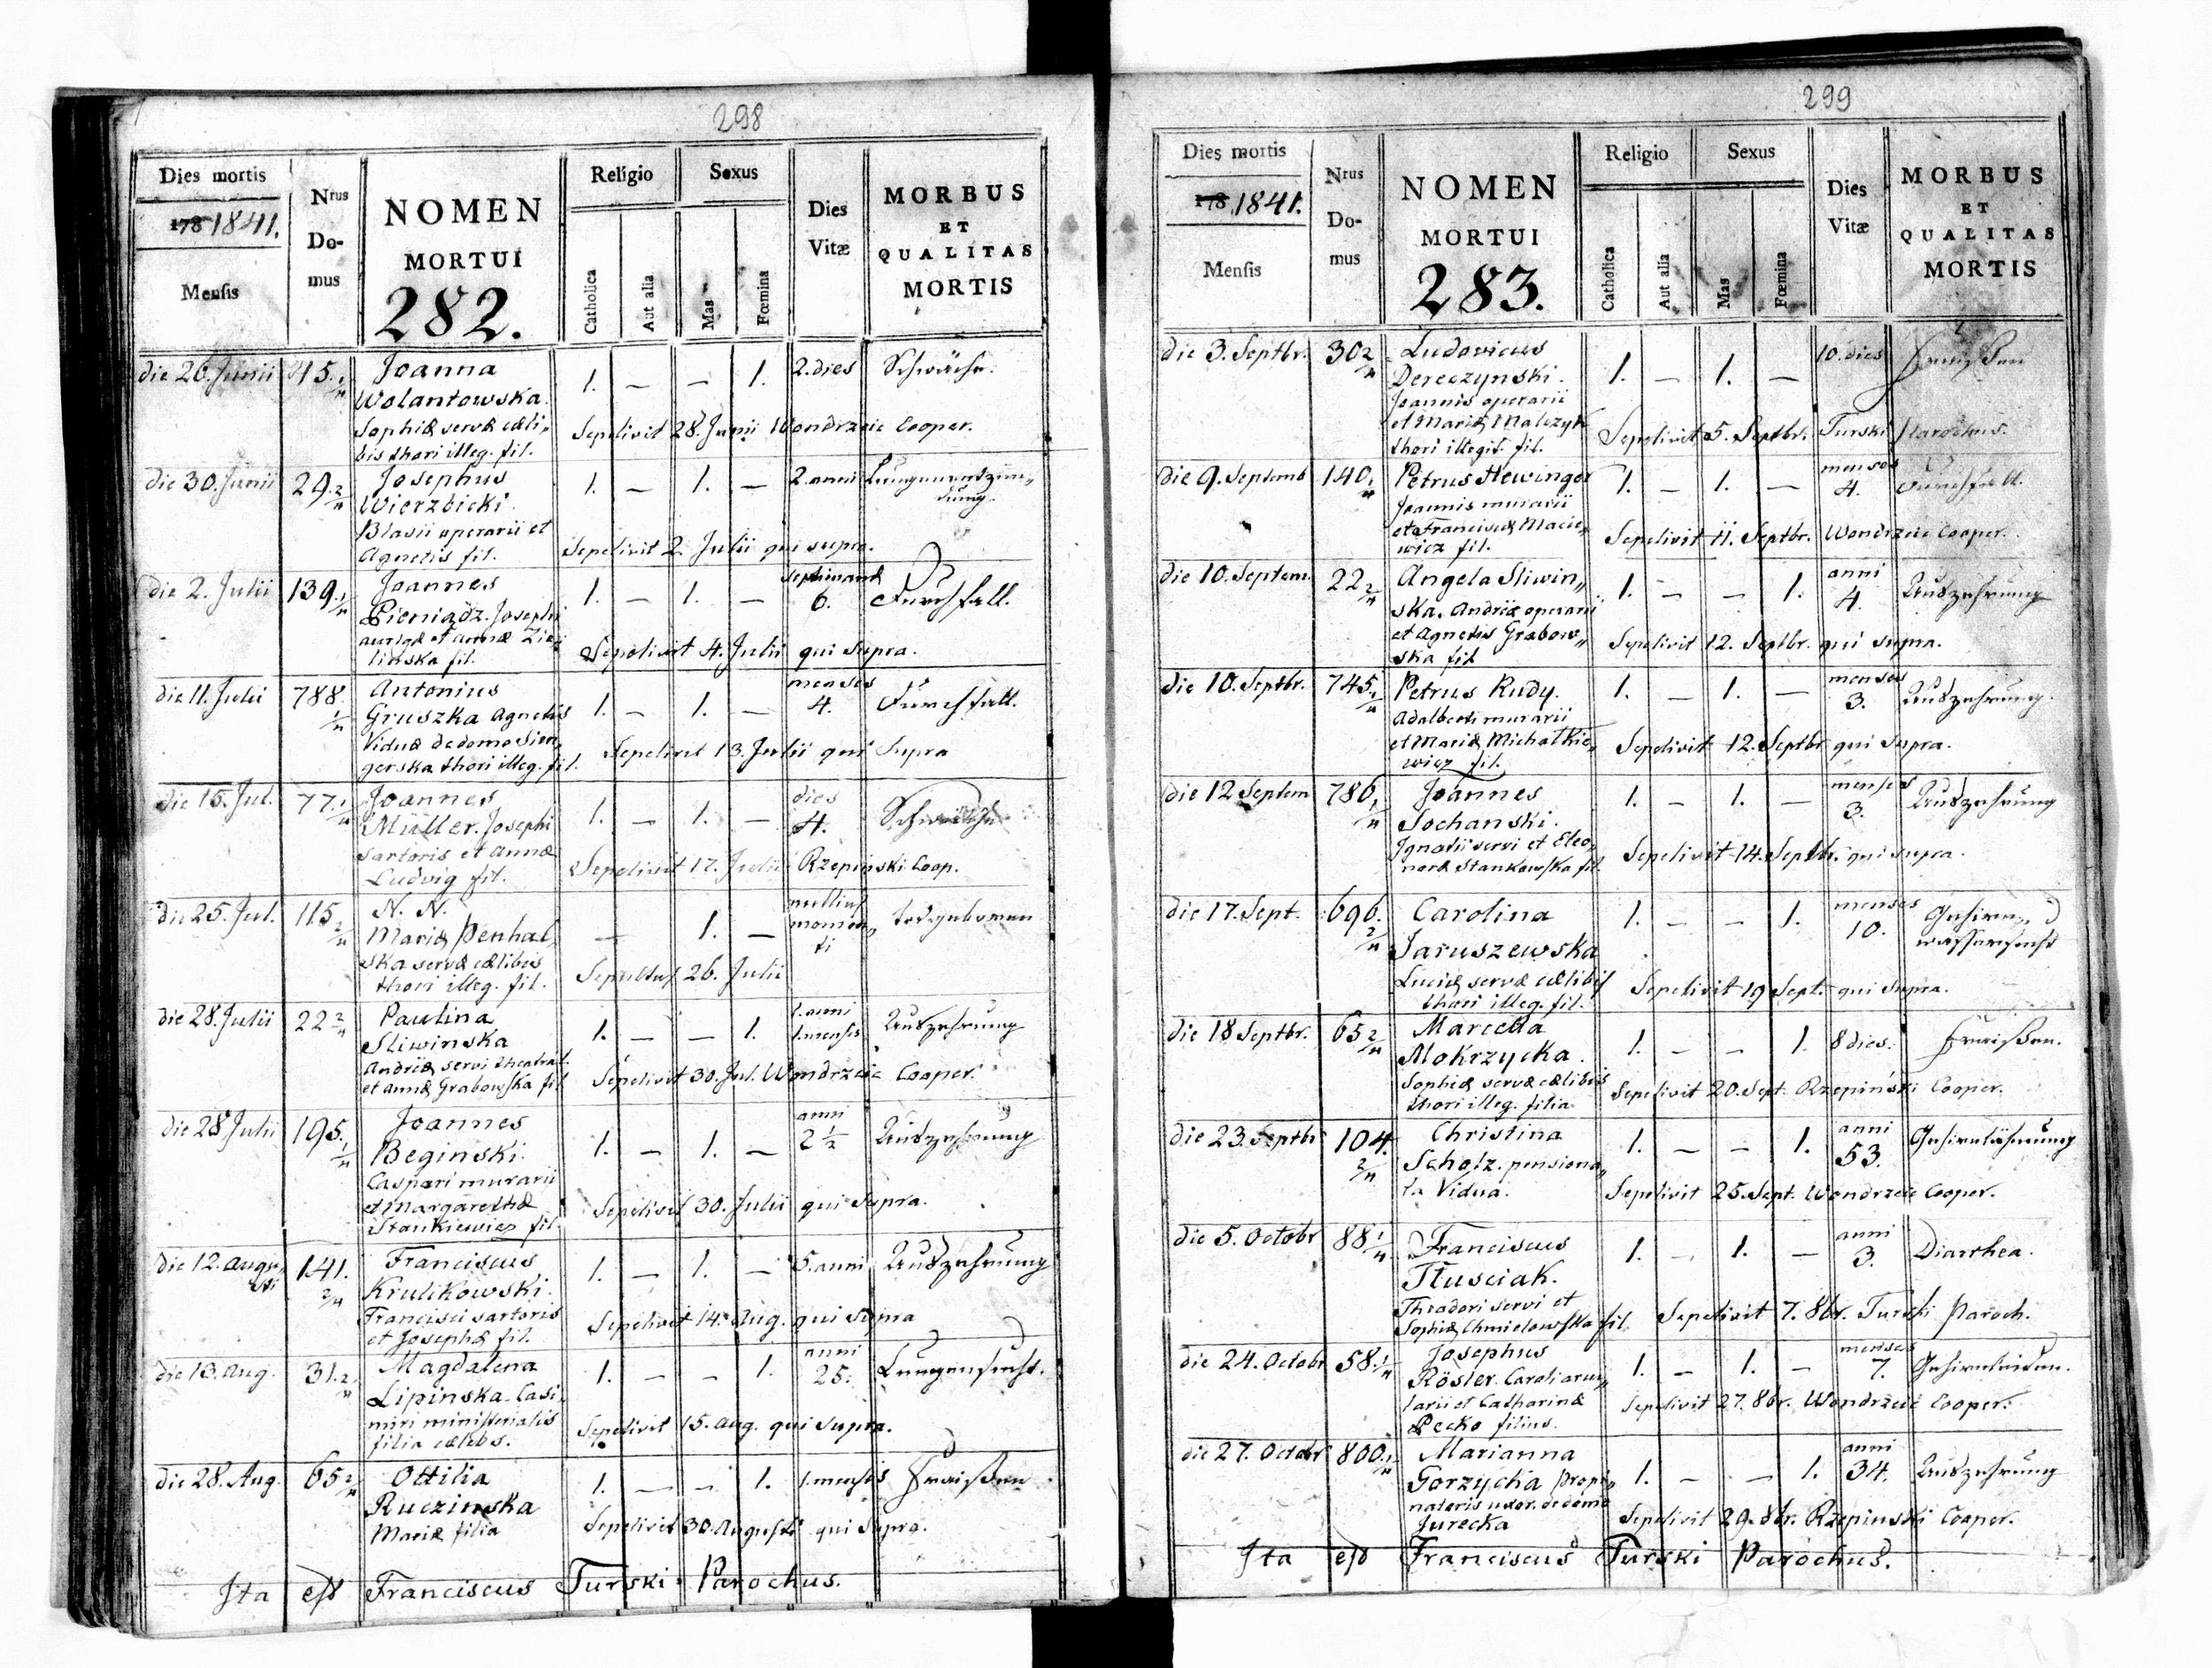 298
Dies mortis
178 1841.
Mensis
Nrus Domus
NOMEN
MORTUI
282.
Religio
Catholica
Aut alia
Sexus
Mas
Fœmina
Dies
Vitæ
MORBUS
ET
QUALITAS
MORTIS
die 26. Junii 45. 1/4 Joanna 1. — — 1. 2. dies Schwäche.
Wolantowska.
Sophiæ servæ cæli„ Sepelivit 28. Junii Wondrzeic Cooper.
bis thori illeg. fil.
die 30. Junii 29. 2/4 Josephus 1. — 1. — 2. anni Lungenentzün„
Wierzbicki. dung.
Blasii operarii et
Agnetis fil. Sepelivit 2. Julii qui supra.
die 2. Julii 139. 1/4 Joannes 1. — 1. — septimanæ 6. Durchfall.
Pieniądz. Josephi
aurigæ et Annæ Zie„ Sepelivit 4. Julii qui supra.
linska fil.
die 11. Julii 788. 1/4 Antonius 1. — 1. — menses 4. Durchfall.
Gruszka Agnetis
Viduæ de domo Sien„ Sepelivit 13. Julii qui supra
gerska thori illeg. fil.
die 15. Jul. 77. 1/4 Joannes 1. — 1. — dies 4. Schwäche
Müller. Josephi
sartoris et Annæ Sepelivit 17. Julii Rzepinski Coop.
Ludvig fil.
die 25. Jul. 115. 2/4 N. N. — 1. — nullius momen„ti todgeboren
Mariæ Penhal„
ska servæ cælibis Sepultus 26. Julii
thori illeg. fil.
die 28. Julii 22 2/4 Paulina 1. — — 1. 1. anni 1. mensis Auszehrung
Sliwinska
Andreæ servi theatral. Sepelivit 30. Jul. Wondrzeic Cooper.
et Annæ Grabowska fil
die 28 Julii 195. 1/4 Joannes 1. — 1. — anni 2 1/2 Auszehrung
Beginski.
Caspari murarii
et Margarethæ Sepelivit 30. Julii qui supra.
Stankiewicz fil.
die 12. Augusti 141. 2/4 Franciscus 1. — 1. — 5. anni Auszehrung
Krulikowski.
Francisci sartoris Sepelivit 14. Aug. qui supra
et Josephæ fil.
die 13. Aug. 31. 2/4 Magdalena 1. — — 1. anni 25. Lungensucht.
Lipinska. Casi„
miri ministerialis Sepelivit 15. Aug. qui supra.
filia cælebs.
die 28. Aug. 65 2/4 Ottilia 1. — — 1. 1. mensis Fraißen.
Ruczinska
Mariæ filia Sepelivit 30. Augusti qui supra.
Ita est Franciscus Turski Parochus.
299
Dies mortis
178 1841.
Mensis
Nrus Domus
NOMEN
MORTUI
283.
Religio
Catholica
Aut alia
Sexus
Mas
Fœmina
Dies
Vitæ
MORBUS
ET
QUALITAS
MORTIS
die 3. Septbr. 30 2/4 Ludovicus 1. — 1. — 10. dies Fraißen
Dereczynski.
Joannis operarii
et Mariæ Malczyk Sepelivit 5. Septbr. Turski Parochus.
thori illegit. fil.
die 9. Septemb 140. 1/4 Petrus Hewinger 1. — 1. — menses 4. Durchfall.
Joannis murarii
et Franciscæ Macie„ Sepelivit 11. Septbr. Wondrzeic Cooper.
wicz fil.
die 10. Septem. 22 2/4 Angela Sliwin„ 1. — — 1. anni 4. Auszehrung
ska. Andreæ operarii
et Agnetis Grabow„ Sepelivit 12. Septbr. qui supra.
ska fil
die 10. Septbr. 745. 1/4 Petrus Rudy. 1. — 1. — menses 3. Auszehrung.
Adalberti murarii
et Mariæ Michalkie„ Sepelivit 12. Septbr qui supra.
wicz fil.
die 12 Septem 786. 1/4 Joannes 1. — 1. — menses 3. Auszehrung
Sochanski.
Ignatii servi et Eleo„ Sepelivit 14. Septbr. qui supra.
noræ Stankowska fil.
die 17. Sept. 696. 2/4 Carolina 1. — — 1. menses 10. Gehirn„
Jaruszewska wassersucht
Luciæ servæ cælibis Sepelivit 19 Sept. qui supra.
thori illeg. fil.
die 18 Septbr. 65 2/4 Marcella 1. — — 1. 8 dies. Fraißen.
Mokrzycka.
Sophiæ servæ cælibis Sepelivit 20. Sept. Rzepiński Cooper.
thori illeg. filia
die 23. Septbr 104. 2/4 Christina 1. — — 1. anni 53. Gehirnlähmung
Scholz. pensiona„
ta Vidua. Sepelivit 25. Sept. Wondrzeic Cooper.
die 5. Octobr 88 1/4 Franciscus 1. — 1. — anni 3. Diarrhea.
Tłusciak.
Theodori servi et Sepelivit 7. 8br. Turski Paroch.
Sophiæ Chmielowska fil.
die 24. Octobr 58. 1/4 Josephus 1. — 1. — menses 7. Gehirnleiden.
Rösler. Caroli arcu„
larii et Catharinæ Sepelivit 27. 8br. Wondrzeic Cooper.
Pecko filius.
die 27. Octobr 800. 1/4 Marianna 1. — — 1. anni 34. Auszehrung
Gorzycka propi„
natoris uxor. de domo Sepelivit 29. 8br. Rzepinski Cooper.
Jurecka
Ita est Franciscus Turski Parochus.